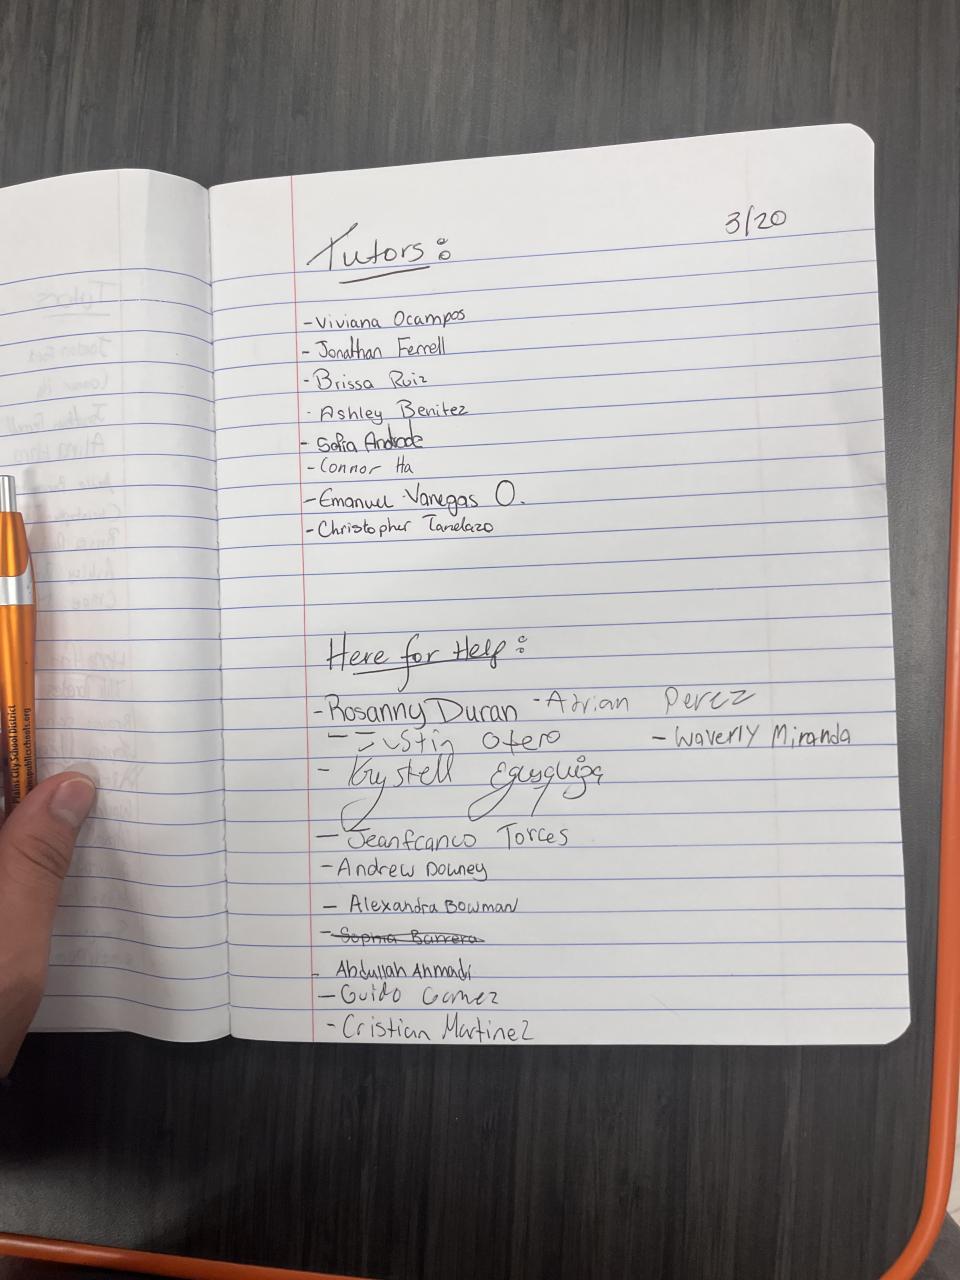 3/20
Tutors:
- Viviana Ocampos
- Jonathan Ferrell
- Brissa Ruiz
- Ashley Benitez
- Sofia Andrade
- Connor Ha
- Emanuel Vanegas O.
- Christopher
Here for Help:
- Rosanny Duran - Adrian Perez
- Justin Otero - Waverly Miranda
- Krystell Egusquiza
- Jeanfranco Torres
- Andrew Downey
- Alexandra Bowman
- Sophia Barrera
- Abdullah Ahmadi
- Guido Gomez
- Cristian Martinez
Plains City School District